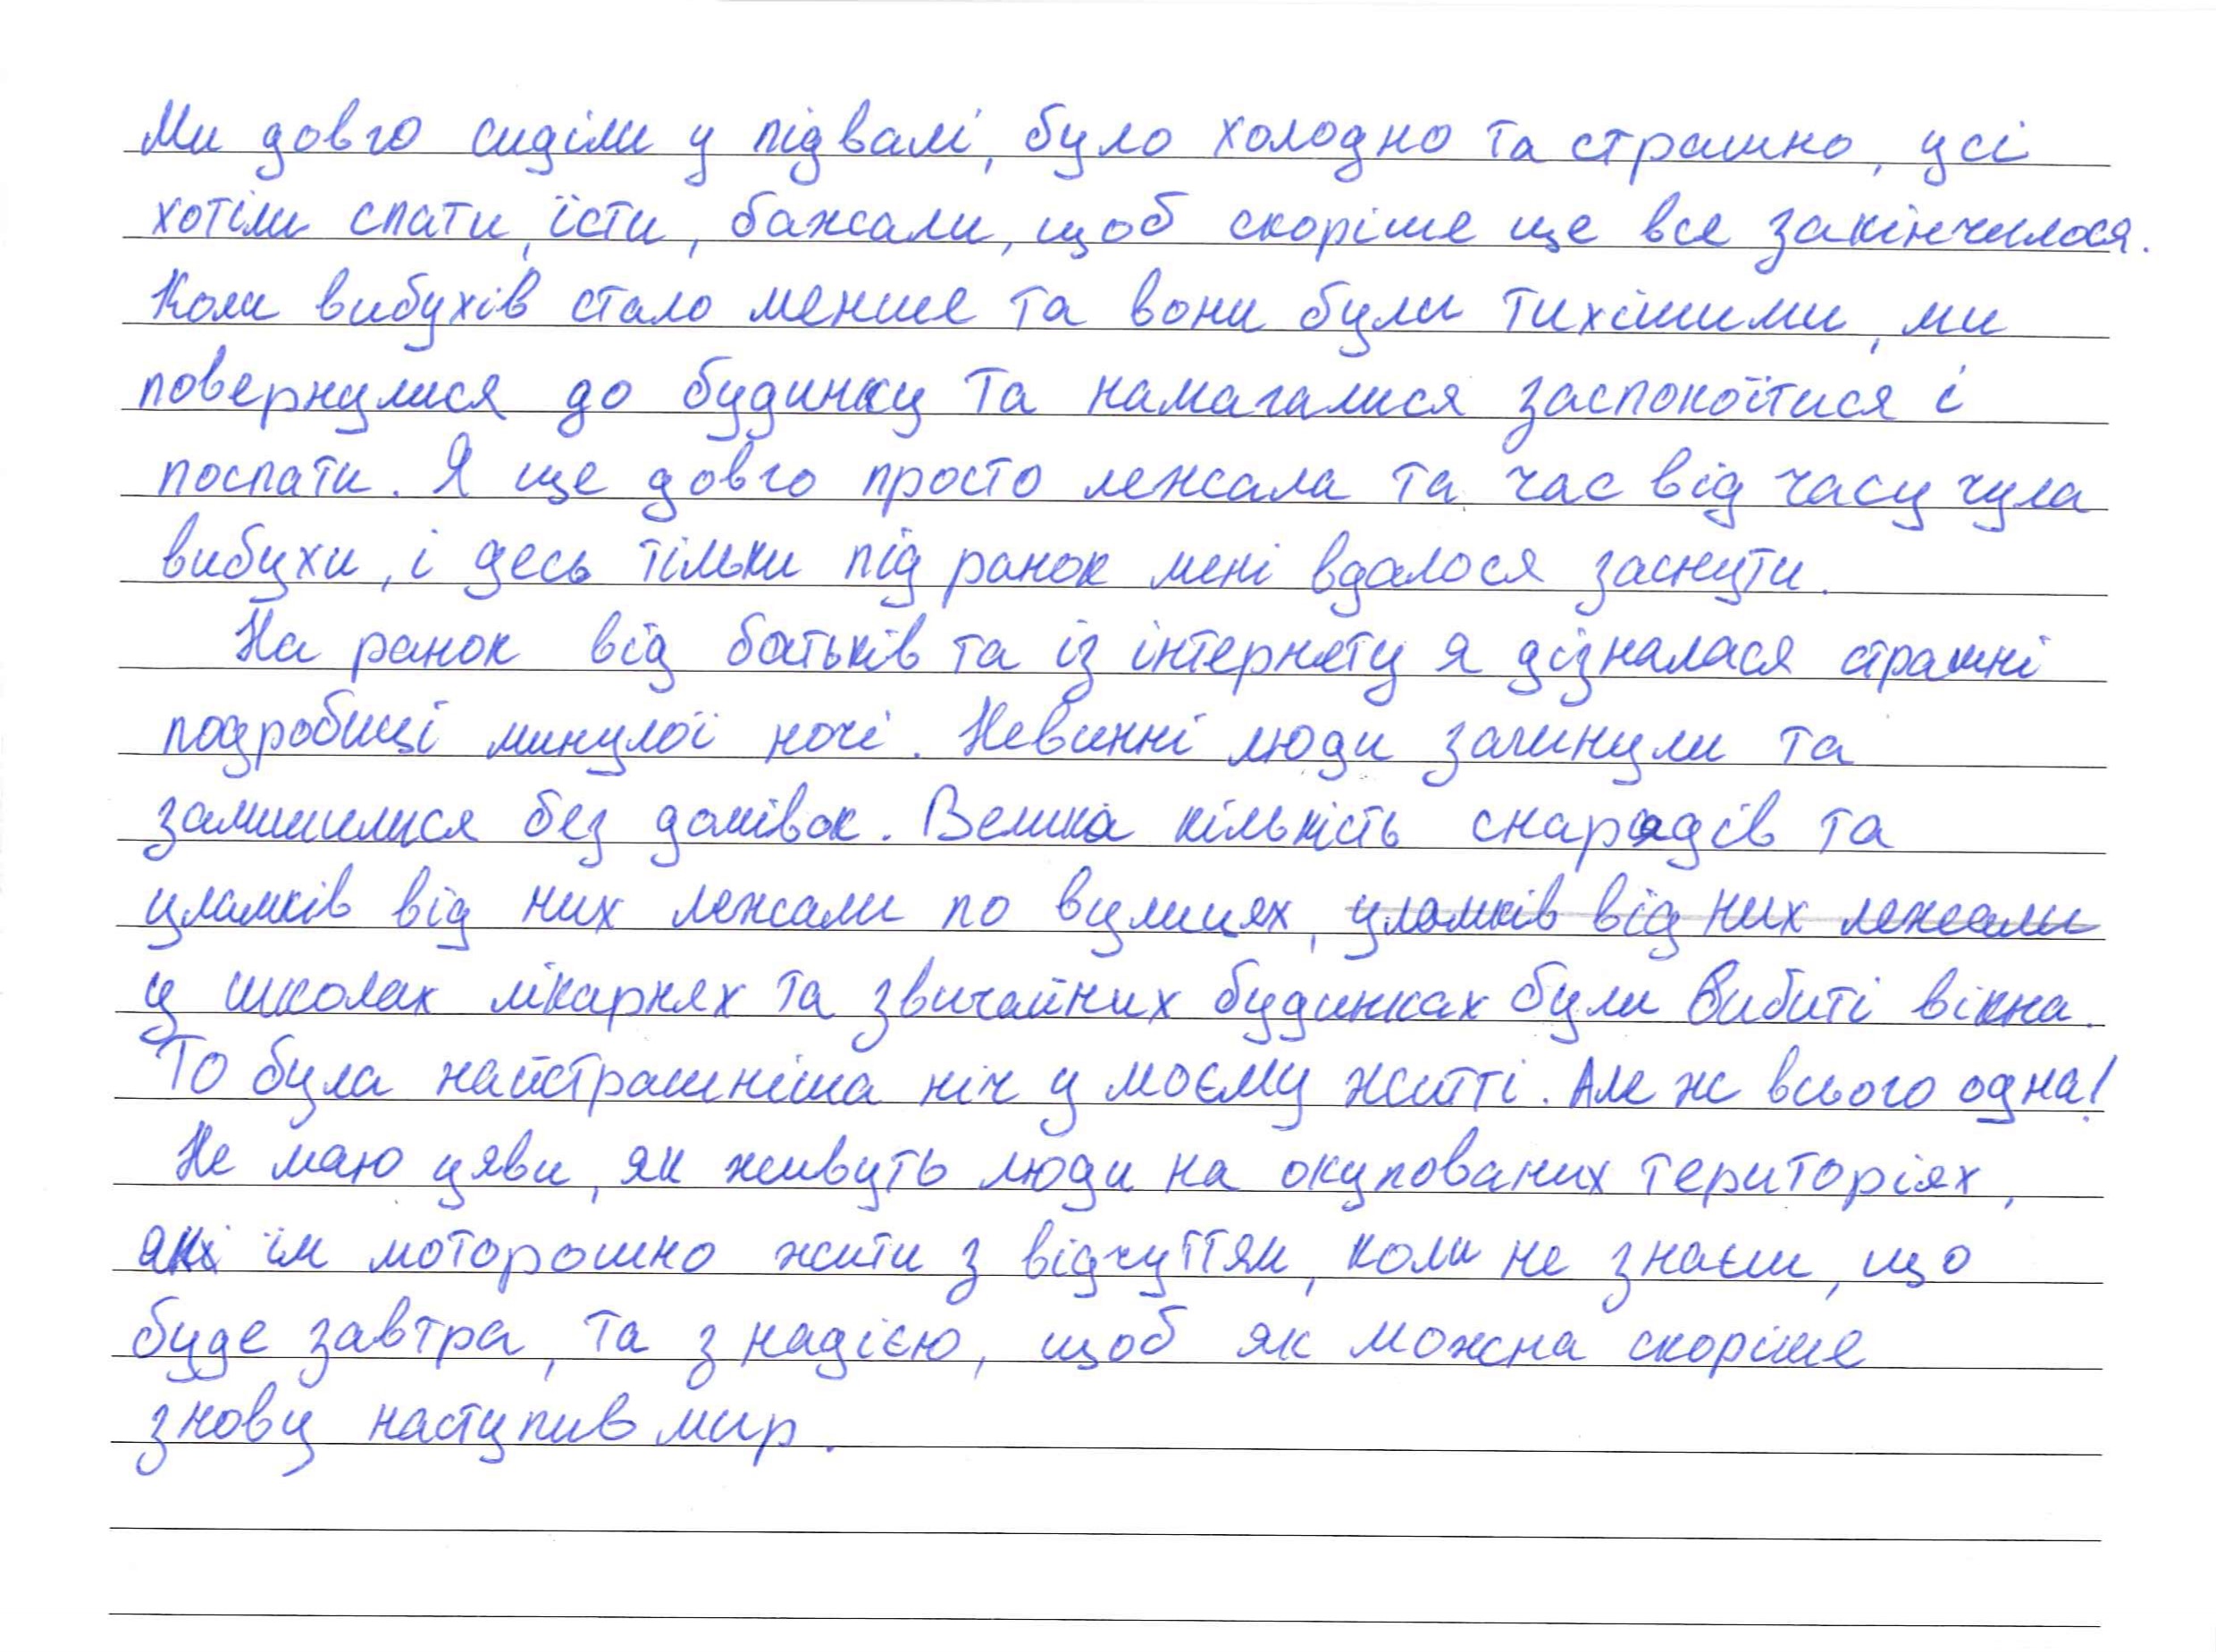 Ми довго сиділи у підвалі, було холодно та страшно, усі
хотіли спати, їсти, бажали, щоб скоріше це все закінчилося.
Коли вибухів стало менше та вони були тихішими, ми
повернулися до будинку та намагалися заспокоїтися і
поспати. Я ще довго просто лежала та час від часу чула
вибухи, і десь тільки під ранок мені вдалося заснути.
На ранок від батьків та із інтернету я дізналася страшні
подробиці минулої ночі. Невинні люди загинули та
залишилися без домівок. Велика кількість снарядів та
уламків від них лежали по вулицях, уламків від них лежали
у школах лікарнях та звичайних будинках були вибиті вікна.
То була найстрашніша ніч у моєму житті. Але ж всього одна!
Не маю уяви, як живуть люди на окупованих територіях,
які їм моторошно жити з відчуттям, коли не знаєш, що
буде завтра, та з надією, щоб як можна скоріше
знову наступив мир.